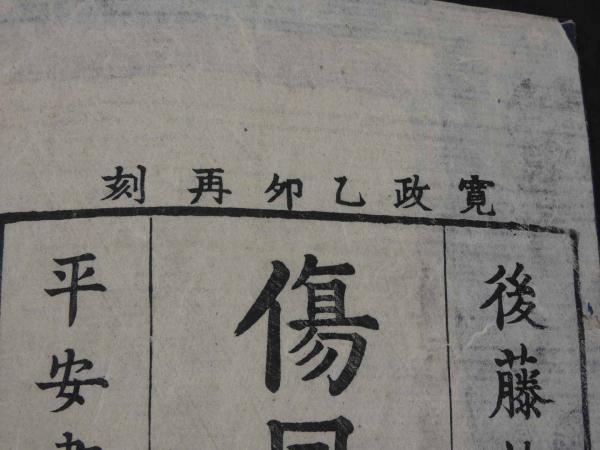 寛政乙卯再刻
後藤
傷
平安